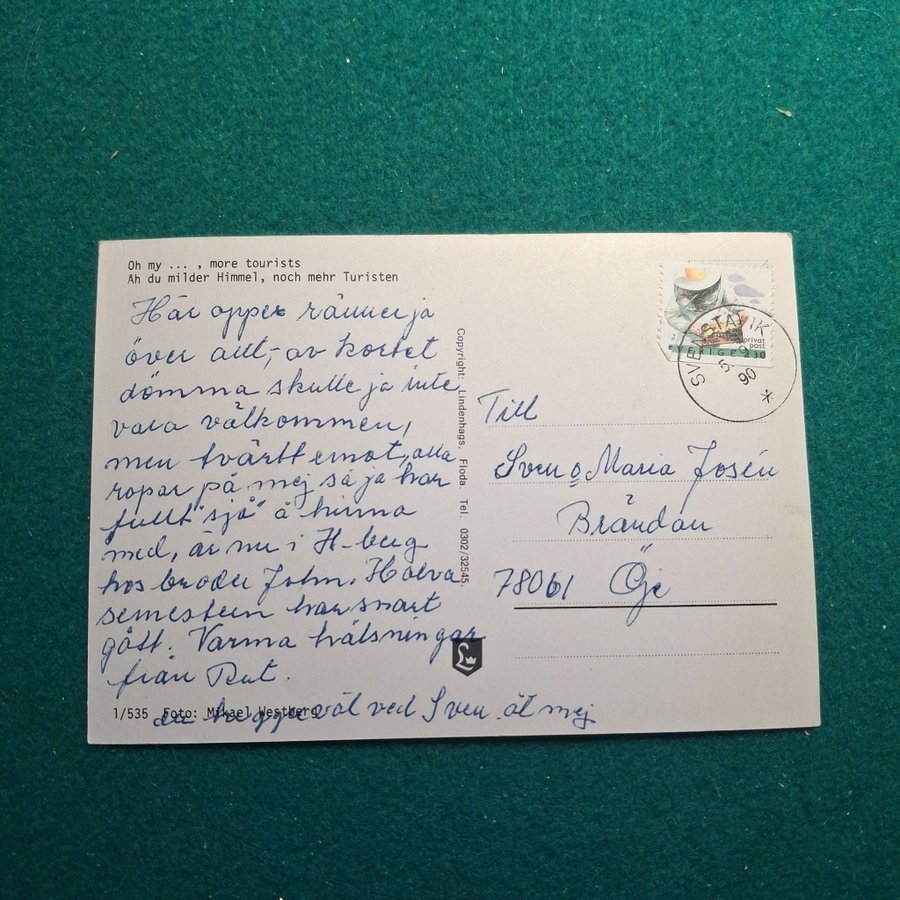 Oh my ... , more tourists
Ah du milder Himmel, noch mehr Turisten
Här oppe ränner ja
över allt, av kortet
dömma skulle ja inte
vara välkommen,
men tvärtt emot, alla
ropar på mej så ja har
fullt "sjå" å hinna
med, är nu i H-berg
hos broder John. Halva
semestern har snart
gått. Varma hälsningar
från Rut.
väl ved Sven åt mej
1/535 Foto: Mikael Westberg
Copyright: Lindenhags, Floda. Tel. 0302/32545.
privat
post
SVERIGE
SVENSTAVIK
90
Till
Sven o Maria Josén
Brändan
78061 Öje